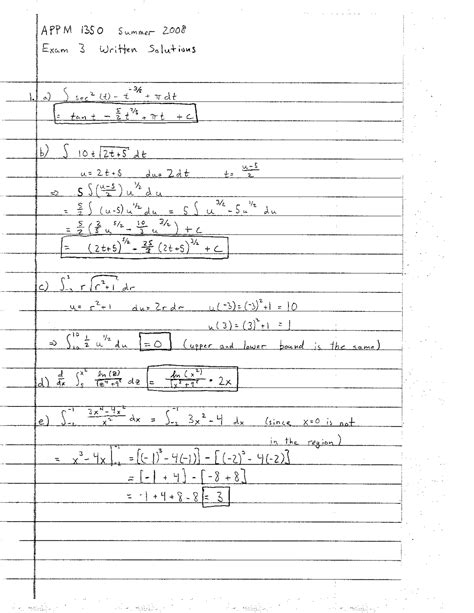 APPM 1350 Summer 2008
Exam 3 Written Solutions
1. a) ∫ sec²(t) - t^(-3/5) + π dt
= tan t - 5/2 t^(2/5) + πt + C
b) ∫ 10t √(2t+5) dt
u = 2t+5 du = 2dt t = (u-5)/2
⇒ 5 ∫ ((u-5)/2) u^(1/2) du
= 5/2 ∫ (u-5) u^(1/2) du = 5/2 ∫ u^(3/2) - 5u^(1/2) du
= 5/2 (2/5 u^(5/2) - 10/3 u^(3/2)) + C
= (2t+5)^(5/2) - 25/3 (2t+5)^(3/2) + C
c) ∫_(-3)^3 r √(r²+1) dr
u = r²+1 du = 2r dr u(-3) = (-3)²+1 = 10
u(3) = (3)²+1 = 1
⇒ ∫_10^10 1/2 u^(1/2) du = 0 (upper and lower bound is the same)
d) d/dx ∫_5^(x²) ln(z)/√(z⁴+9) dz = ln(x²)/√(x⁸+9) · 2x
e) ∫_(-2)^(-1) (3x⁴-4x²)/x² dx = ∫_(-2)^(-1) 3x² - 4 dx (since x=0 is not
in the region)
= x³ - 4x |_(-2)^(-1) = [(-1)³ - 4(-1)] - [(-2)³ - 4(-2)]
= [-1 + 4] - [-8 + 8]
= -1 + 4 + 8 - 8 = 3